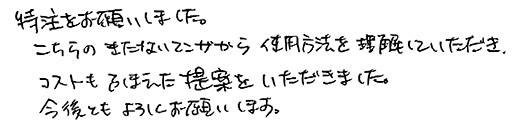 特注をお願いしました。
こちらのきたないマンガから使用方法を理解していただき、
コストもふまえた提案をいただきました。
今後ともよろしくお願いします。